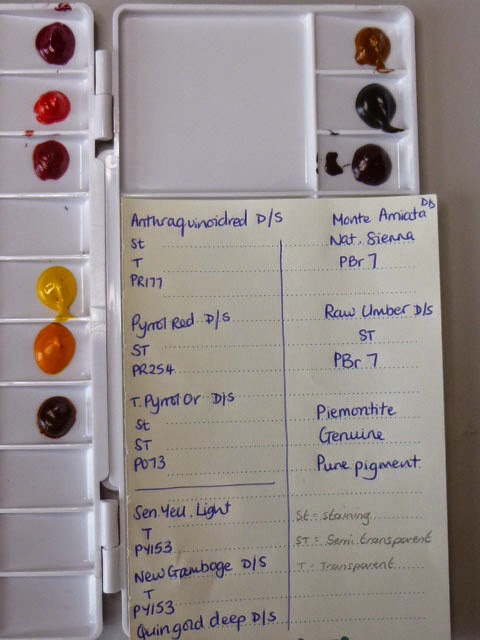 Anthraquinoidred D/S
St
T
PR177
Pyrrol Red D/S
ST
PR254
T. Pyrrol Or D/S
St
ST
PO73
Sen Yell. Light
T
PY153
New Gamboge D/S
T
PY153
Quin gold deep D/S
Monte Amiata D/S
Nat. Sienna
PBr 7
Raw Umber D/S
ST
PBr 7
Piemontite
Genuine
Pure pigment
St = staining
ST = Semi.transparent
T = Transparent